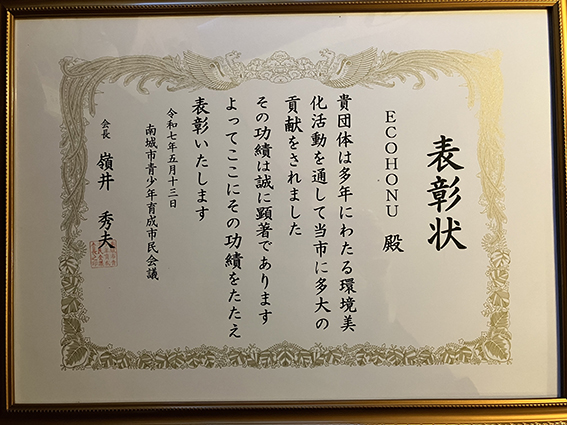 表彰状
ECOHONU 殿
貴団体は多年にわたる環境美
化活動を通して当市に多大の
貢献をされました
その功績は誠に顕著であります
よってここにその功績をたたえ
表彰いたします
令和七年五月十三日
南城市青少年育成市民会議
会長 嶺井 秀夫